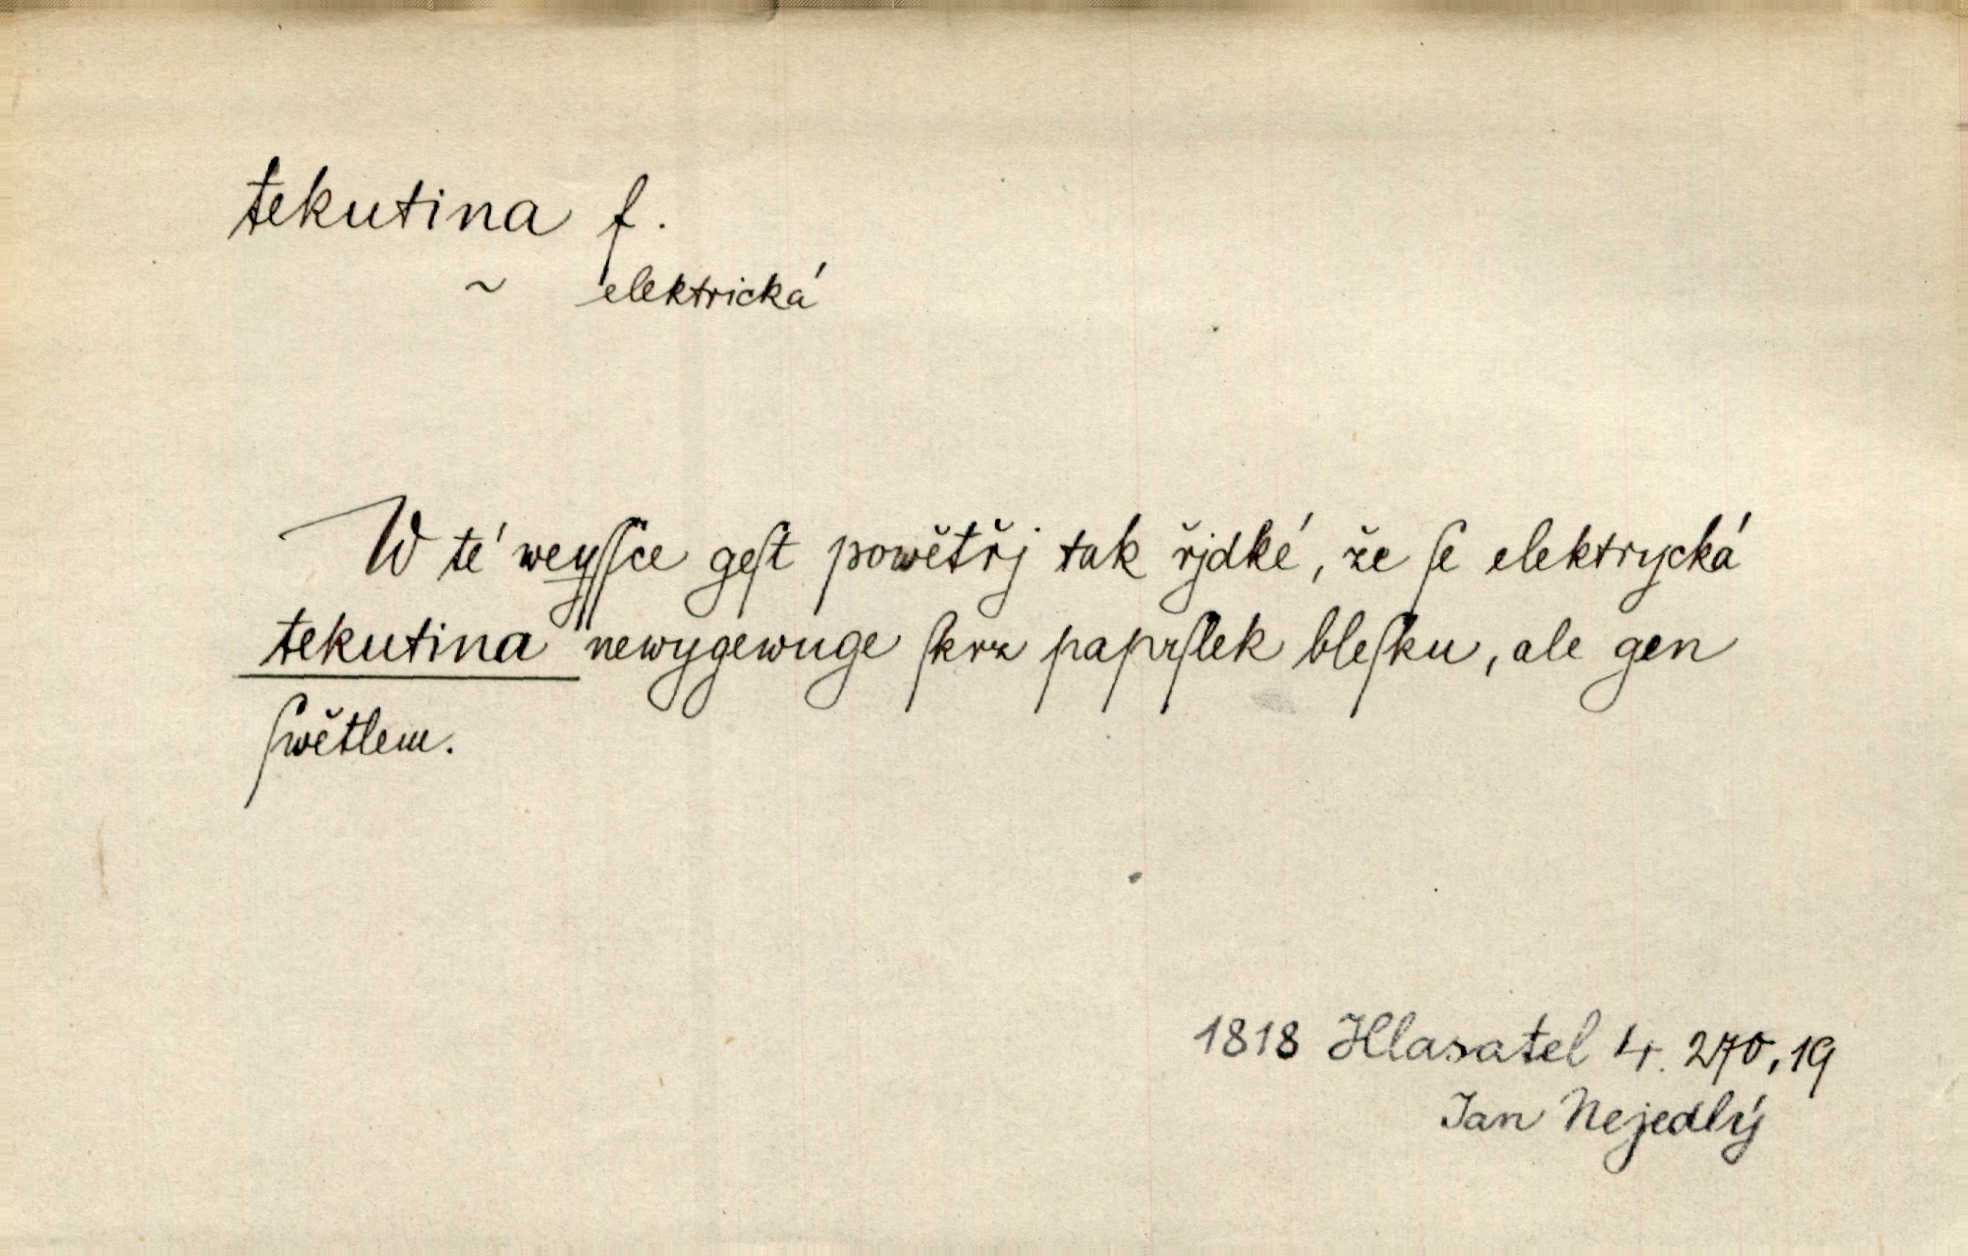 tekutina f.
~ elektrická
W té weyſſce geſt powětřj tak řjdké, že ſe elektrycká
tekutina newygewuge ſkrz paprſlek bleſku, ale gen
ſwětlem.
1818 Hlasatel 4. 270,19
Jan Nejedlý